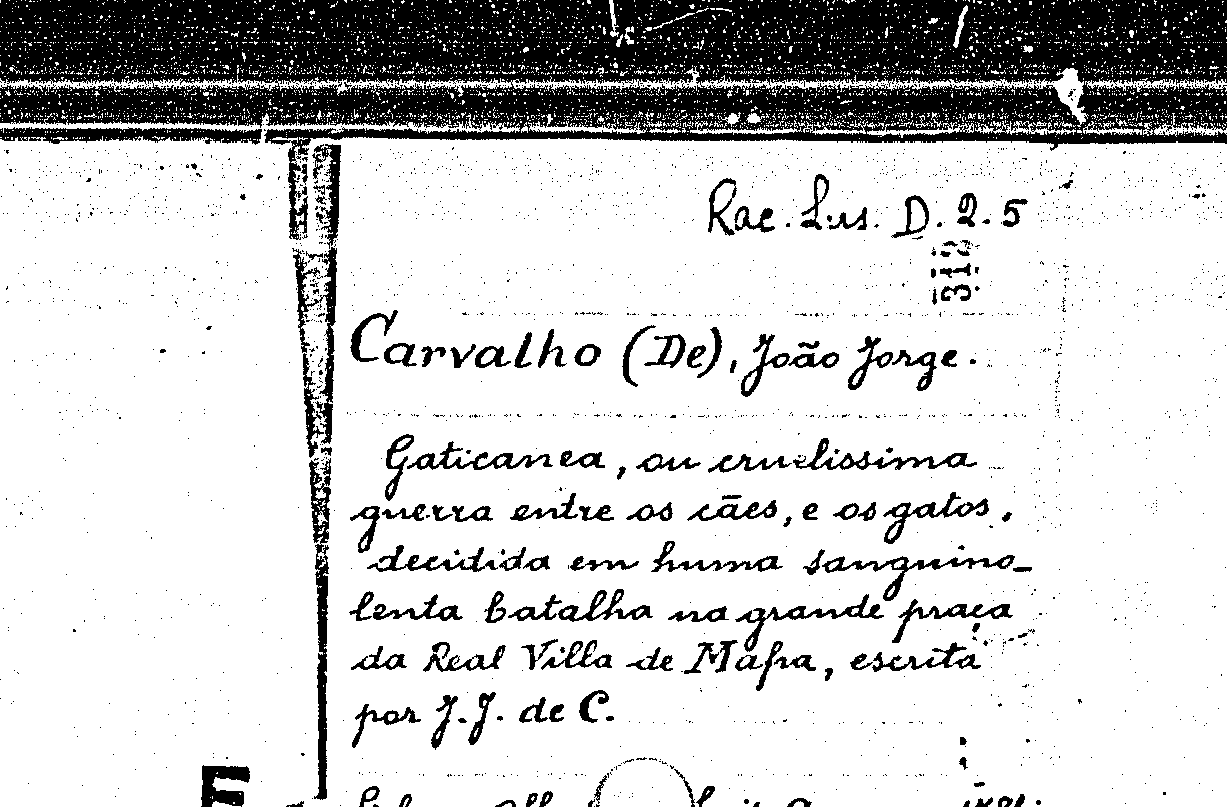 Rac. Lus. D. 2.5
312
Carvalho (De), João Jorge.
Gaticanea, ou cruelissima
guerra entre os cães, e os gatos,
decidida em huma sanguino-
lenta batalha na grande praça
da Real Villa de Mafra, escrita
por J.J. de C.
E